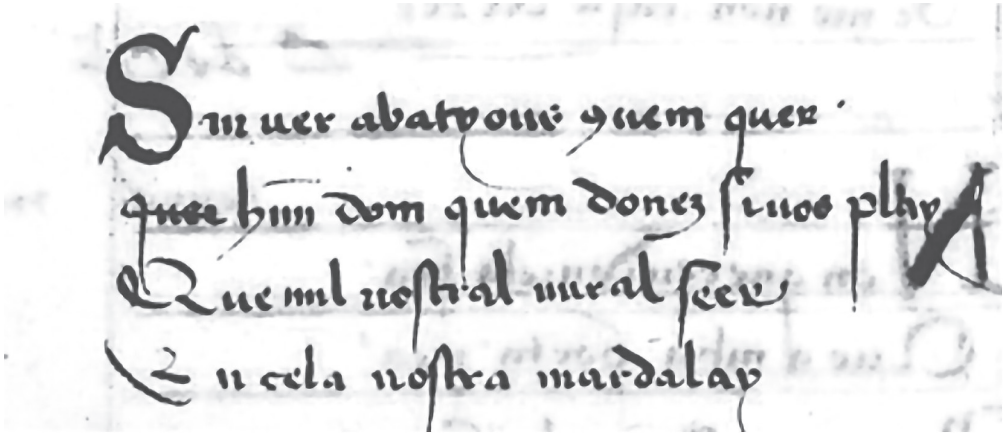 Sinuer abatyoue quem quer ·
quee hun dom quem donez siuos play
Que mil nostral nural seer
En cela nostra mardalay